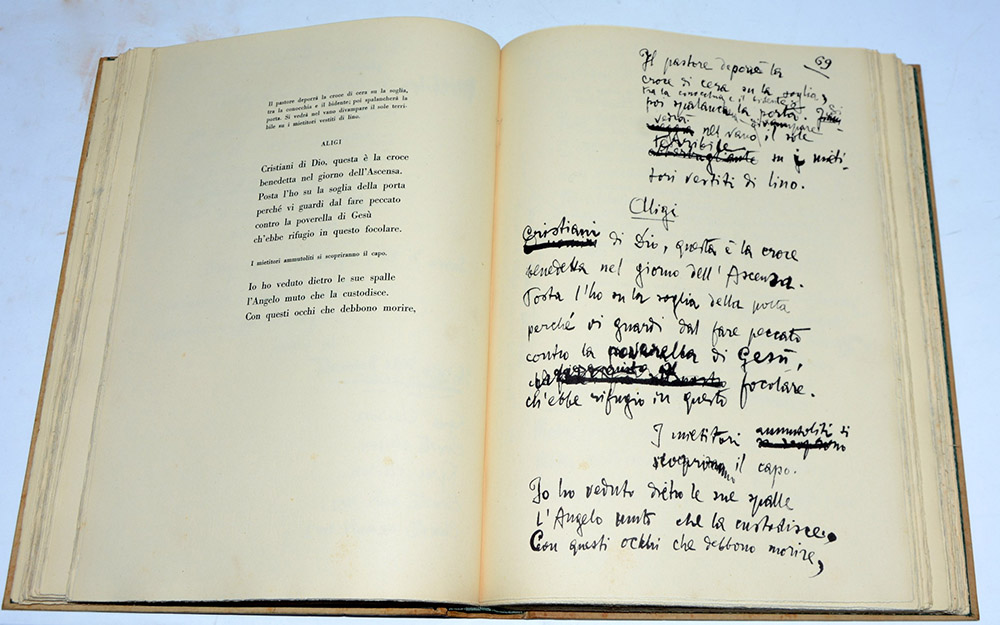 Il pastore deporrà la croce di cera su la soglia,
tra la conocchia e il bidente; poi spalancherà la
porta. Si vedrà nel vano divampare il sole terri-
bile su i mietitori vestiti di lino.
ALIGI
Cristiani di Dio, questa è la croce
benedetta nel giorno dell'Ascensa.
Posta l'ho su la soglia della porta
perché vi guardi dal fare peccato
contro la poverella di Gesù
ch'ebbe rifugio in questo focolare.
I mietitori ammutoliti si scopriranno il capo.
Io ho veduto dietro le sue spalle
l'Angelo muto che la custodisce.
Con questi occhi che debbono morire,
69
Il pastore deporrà la
croce di cera su la soglia,
tra la conocchia e il bidente;
poi spalancherà la porta. Si
vedrà divampare
nel vano il sole
terribile su i mieti-
tori vestiti di lino.
Aligi
Cristiani di Dio, questa è la croce
benedetta nel giorno dell'Ascensa.
Posta l'ho su la soglia della porta
perché vi guardi dal fare peccato
contro la poverella di Gesù,
ch'ebbe rifugio in questo focolare.
I mietitori ammutoliti si
scopriranno il capo.
Io ho veduto dietro le sue spalle
L'Angelo muto che la custodisce.
Con questi occhi che debbono morire,